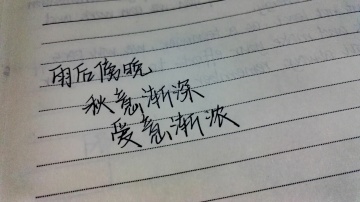 雨后傍晚
秋意渐深
爱意渐浓